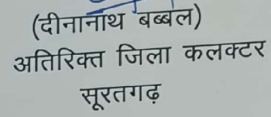 (दीनानाथ बब्बल)
अतिरिक्त जिला कलक्टर
सूरतगढ़